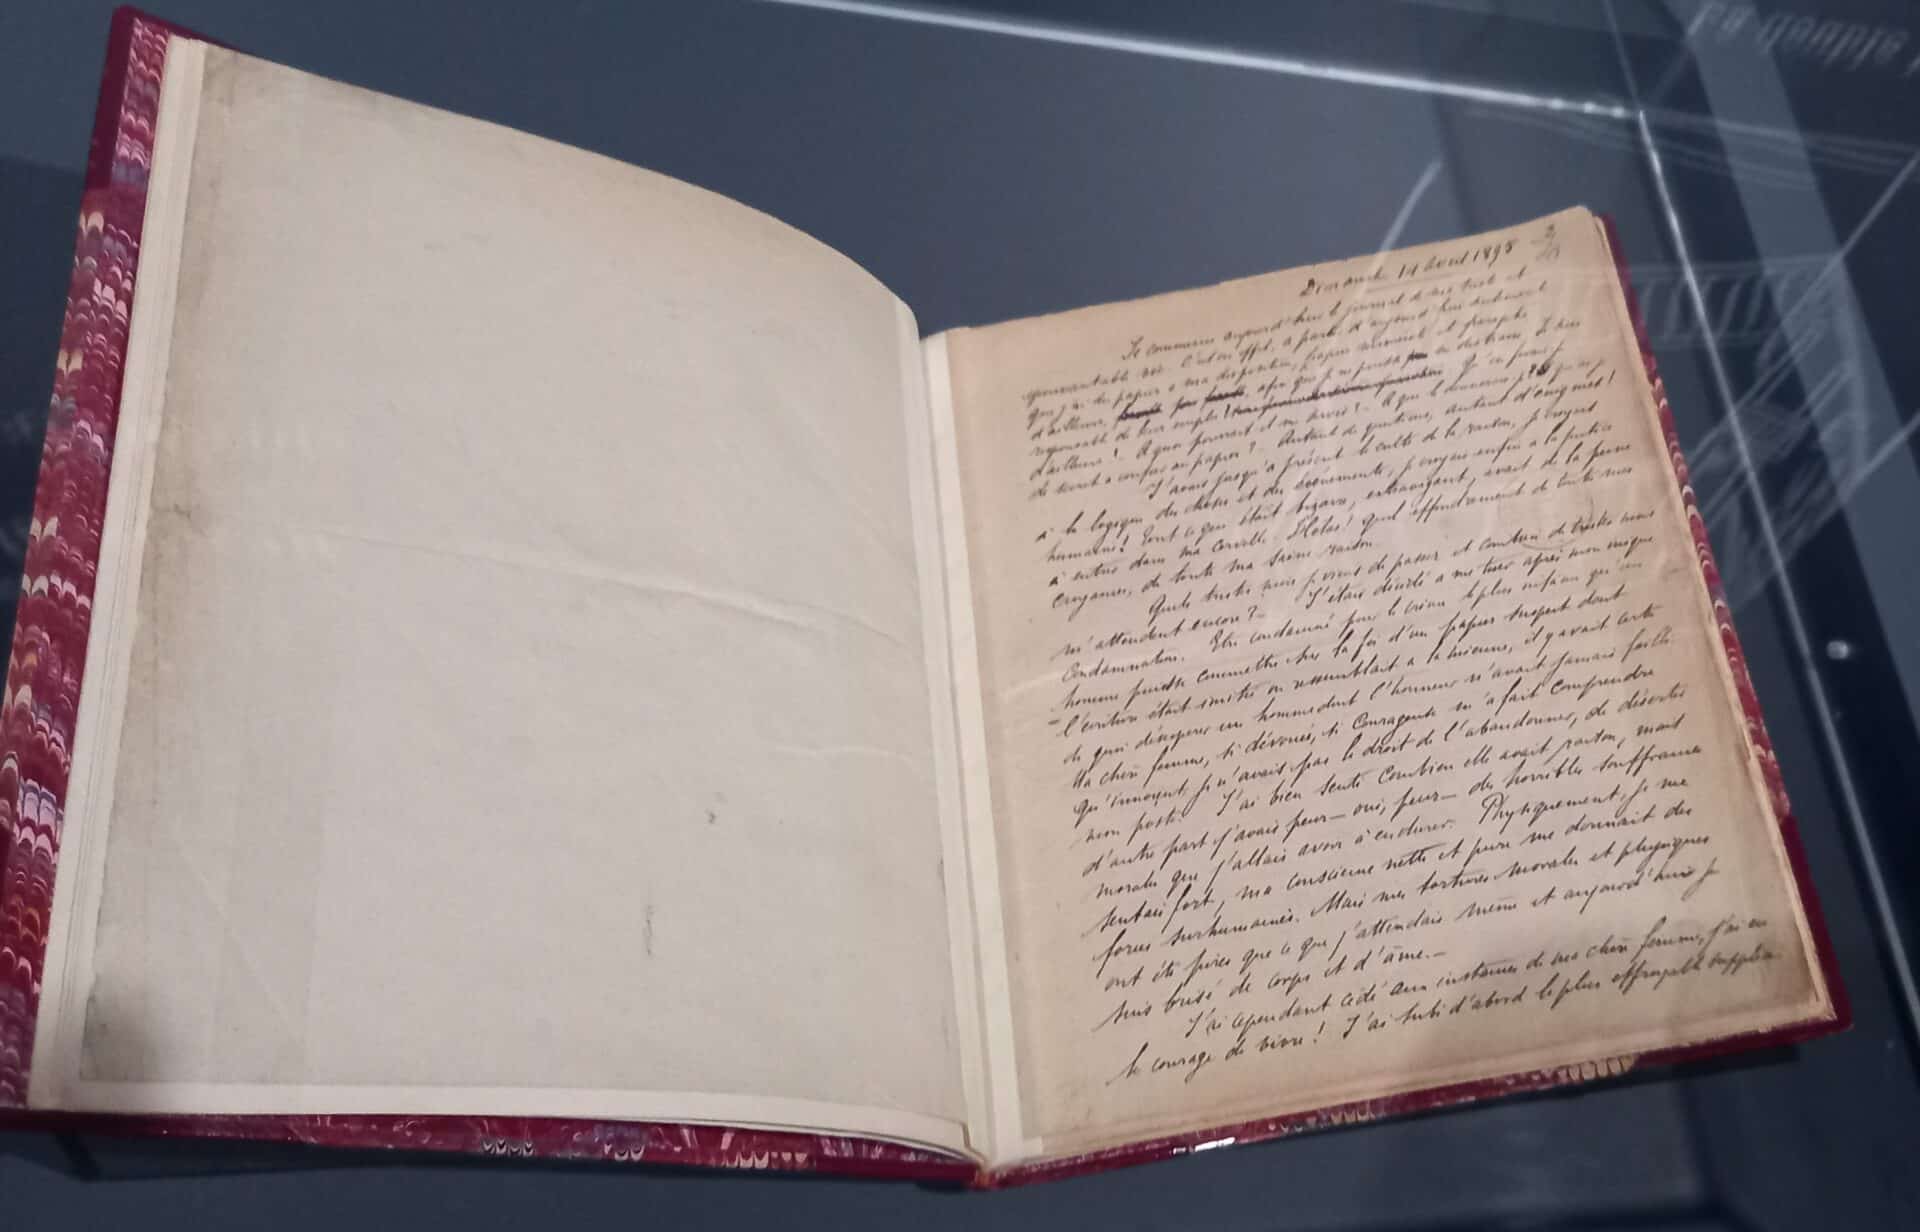 Dimanche 14 avril 1895
Je commence aujourd'hui le journal de ma triste et
épouvantable vie. C'est en effet, à partir d'aujourd'hui seulement
que j'ai du papier à ma disposition, papier numéroté et paraphé
d'ailleurs, afin que je ne puisse en distraire. Je suis
responsable de son emploi! Qu'en ferais-je
d'ailleurs! A quoi pourrait il me servir? A qui le donnerai-je? Qu'ai-je
de secret à confier au papier? Autant de questions, autant d'énigmes!
J'avais jusqu'à présent le culte de la raison, je croyais
à la logique des choses et des événements, je croyais enfin à la justice
humaine! Tout ce qui était bizarre, extravagant, avait de la peine
à entrer dans ma cervelle. Hélas! Quel effondrement de toutes mes
croyances, de toute ma saine raison.
Quels tristes mois je viens de passer et combien de tristes mois
m'attendent encore?
J'étais décidé à me tuer après mon inique
condamnation. Etre condamné pour le crime le plus infâme qu'un
homme puisse commettre sur la foi d'un papier suspect dont
l'écriture était imitée ou ressemblait à la mienne, il y avait certes
de quoi désespérer un homme dont l'honneur n'avait jamais failli.
Ma chère femme, si dévouée, si courageuse m'a fait comprendre
qu'innocent, je n'avais pas le droit de l'abandonner, de déserter
mon poste. J'ai bien senti combien elle avait raison, mais
d'autre part j'avais peur — oui, peur — des horribles souffrances
morales que j'allais avoir à endurer. Physiquement, je me
sentais fort, ma conscience nette et pure me donnait des
forces surhumaines. Mais mes tortures morales et physiques
ont été pires que ce que j'attendais même et aujourd'hui je
suis brisé de corps et d'âme.—
J'ai cependant cédé aux instances de ma chère femme, j'ai eu
le courage de vivre! J'ai subi d'abord le plus effroyable supplice